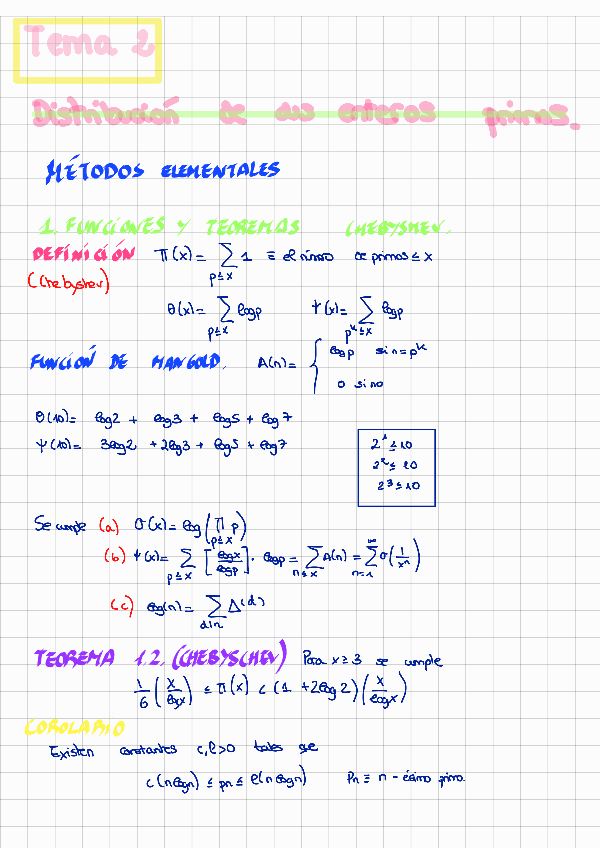 Tema 2
Distribución de los enteros primos.
MÉTODOS ELEMENTALES
1. FUNCIONES Y TEOREMAS CHEBYSHEV.
DEFINICIÓN Π(x) = ∑_{p≤x} 1 ≡ el número de primos ≤ x
(Chebyshev)
θ(x) = ∑_{p≤x} log p ψ(x) = ∑_{p^k≤x} log p
FUNCIÓN DE MANGOLD. Λ(n) = { log p si n = p^k
0 si no
θ(10) = log 2 + log 3 + log 5 + log 7
ψ(10) = 3log 2 + 2log 3 + log 5 + log 7
2^1 ≤ 10
2^2 ≤ 10
2^3 ≤ 10
Se cumple (a) θ(x) = log (∏_{p≤x} p)
(b) ψ(x) = ∑_{p≤x} [log x / log p] · log p = ∑_{n≤x} Λ(n) = ∑_{n=1}^{∞} θ(1/x^n)
(c) log(n) = ∑_{d|n} Λ(d)
TEOREMA 1.2. (CHEBYSCHEV) Para x ≥ 3 se cumple
1/6 (x / log x) ≤ Π(x) < (1 + 2log 2) (x / log x)
COROLARIO
Existen constantes c, l > 0 tales que
c(n log n) ≤ pn ≤ l(n log n) Pn ≡ n-ésimo primo.